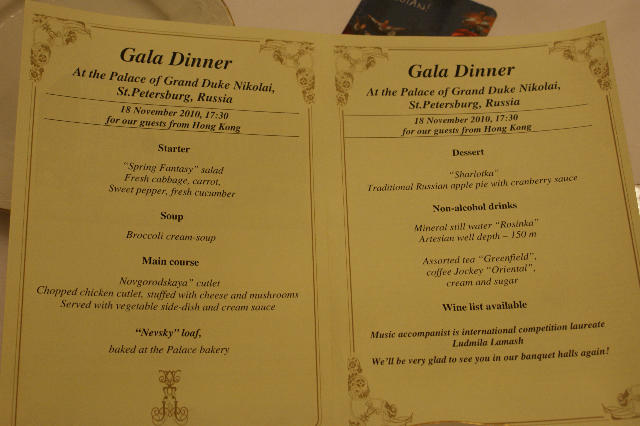 Gala Dinner
At the Palace of Grand Duke Nikolai,
St.Petersburg, Russia
18 November 2010, 17:30
for our guests from Hong Kong
Starter
"Spring Fantasy" salad
Fresh cabbage, carrot,
Sweet pepper, fresh cucumber
Soup
Broccoli cream-soup
Main course
Novgorodskaya" cutlet
Chopped chicken cutlet, stuffed with cheese and mushrooms
Served with vegetable side-dish and cream sauce
"Nevsky" loaf,
baked at the Palace bakery
Gala Dinner
At the Palace of Grand Duke Nikolai,
St.Petersburg, Russia
18 November 2010, 17:30
for our guests from Hong Kong
Dessert
"Sharlotka"
Traditional Russian apple pie with cranberry sauce
Non-alcohol drinks
Mineral still water "Rosinka"
Artesian well depth – 150 m
Assorted tea "Greenfield",
coffee Jockey "Oriental",
cream and sugar
Wine list available
Music accompanist is international competition laureate
Ludmila Lamash
We'll be very glad to see you in our banquet halls again!